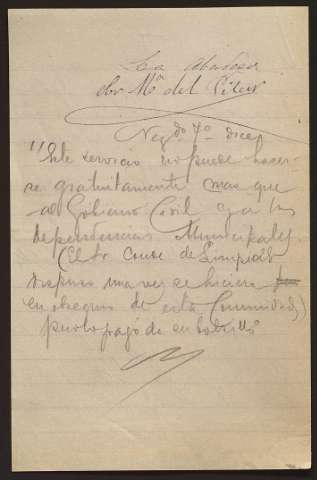 La Abadesa
Sor Mª del Pilar
Negdo 4º dice
"Este servicio no puede hacer-
se gratuitamente mas que
al Gobierno Civil y a las
dependencias Municipales
(El Sr Conde de Limpias
dispuso una vez se hiciera
en obsequio de esta Comunidad)
pero lo pagó de su bolsillo